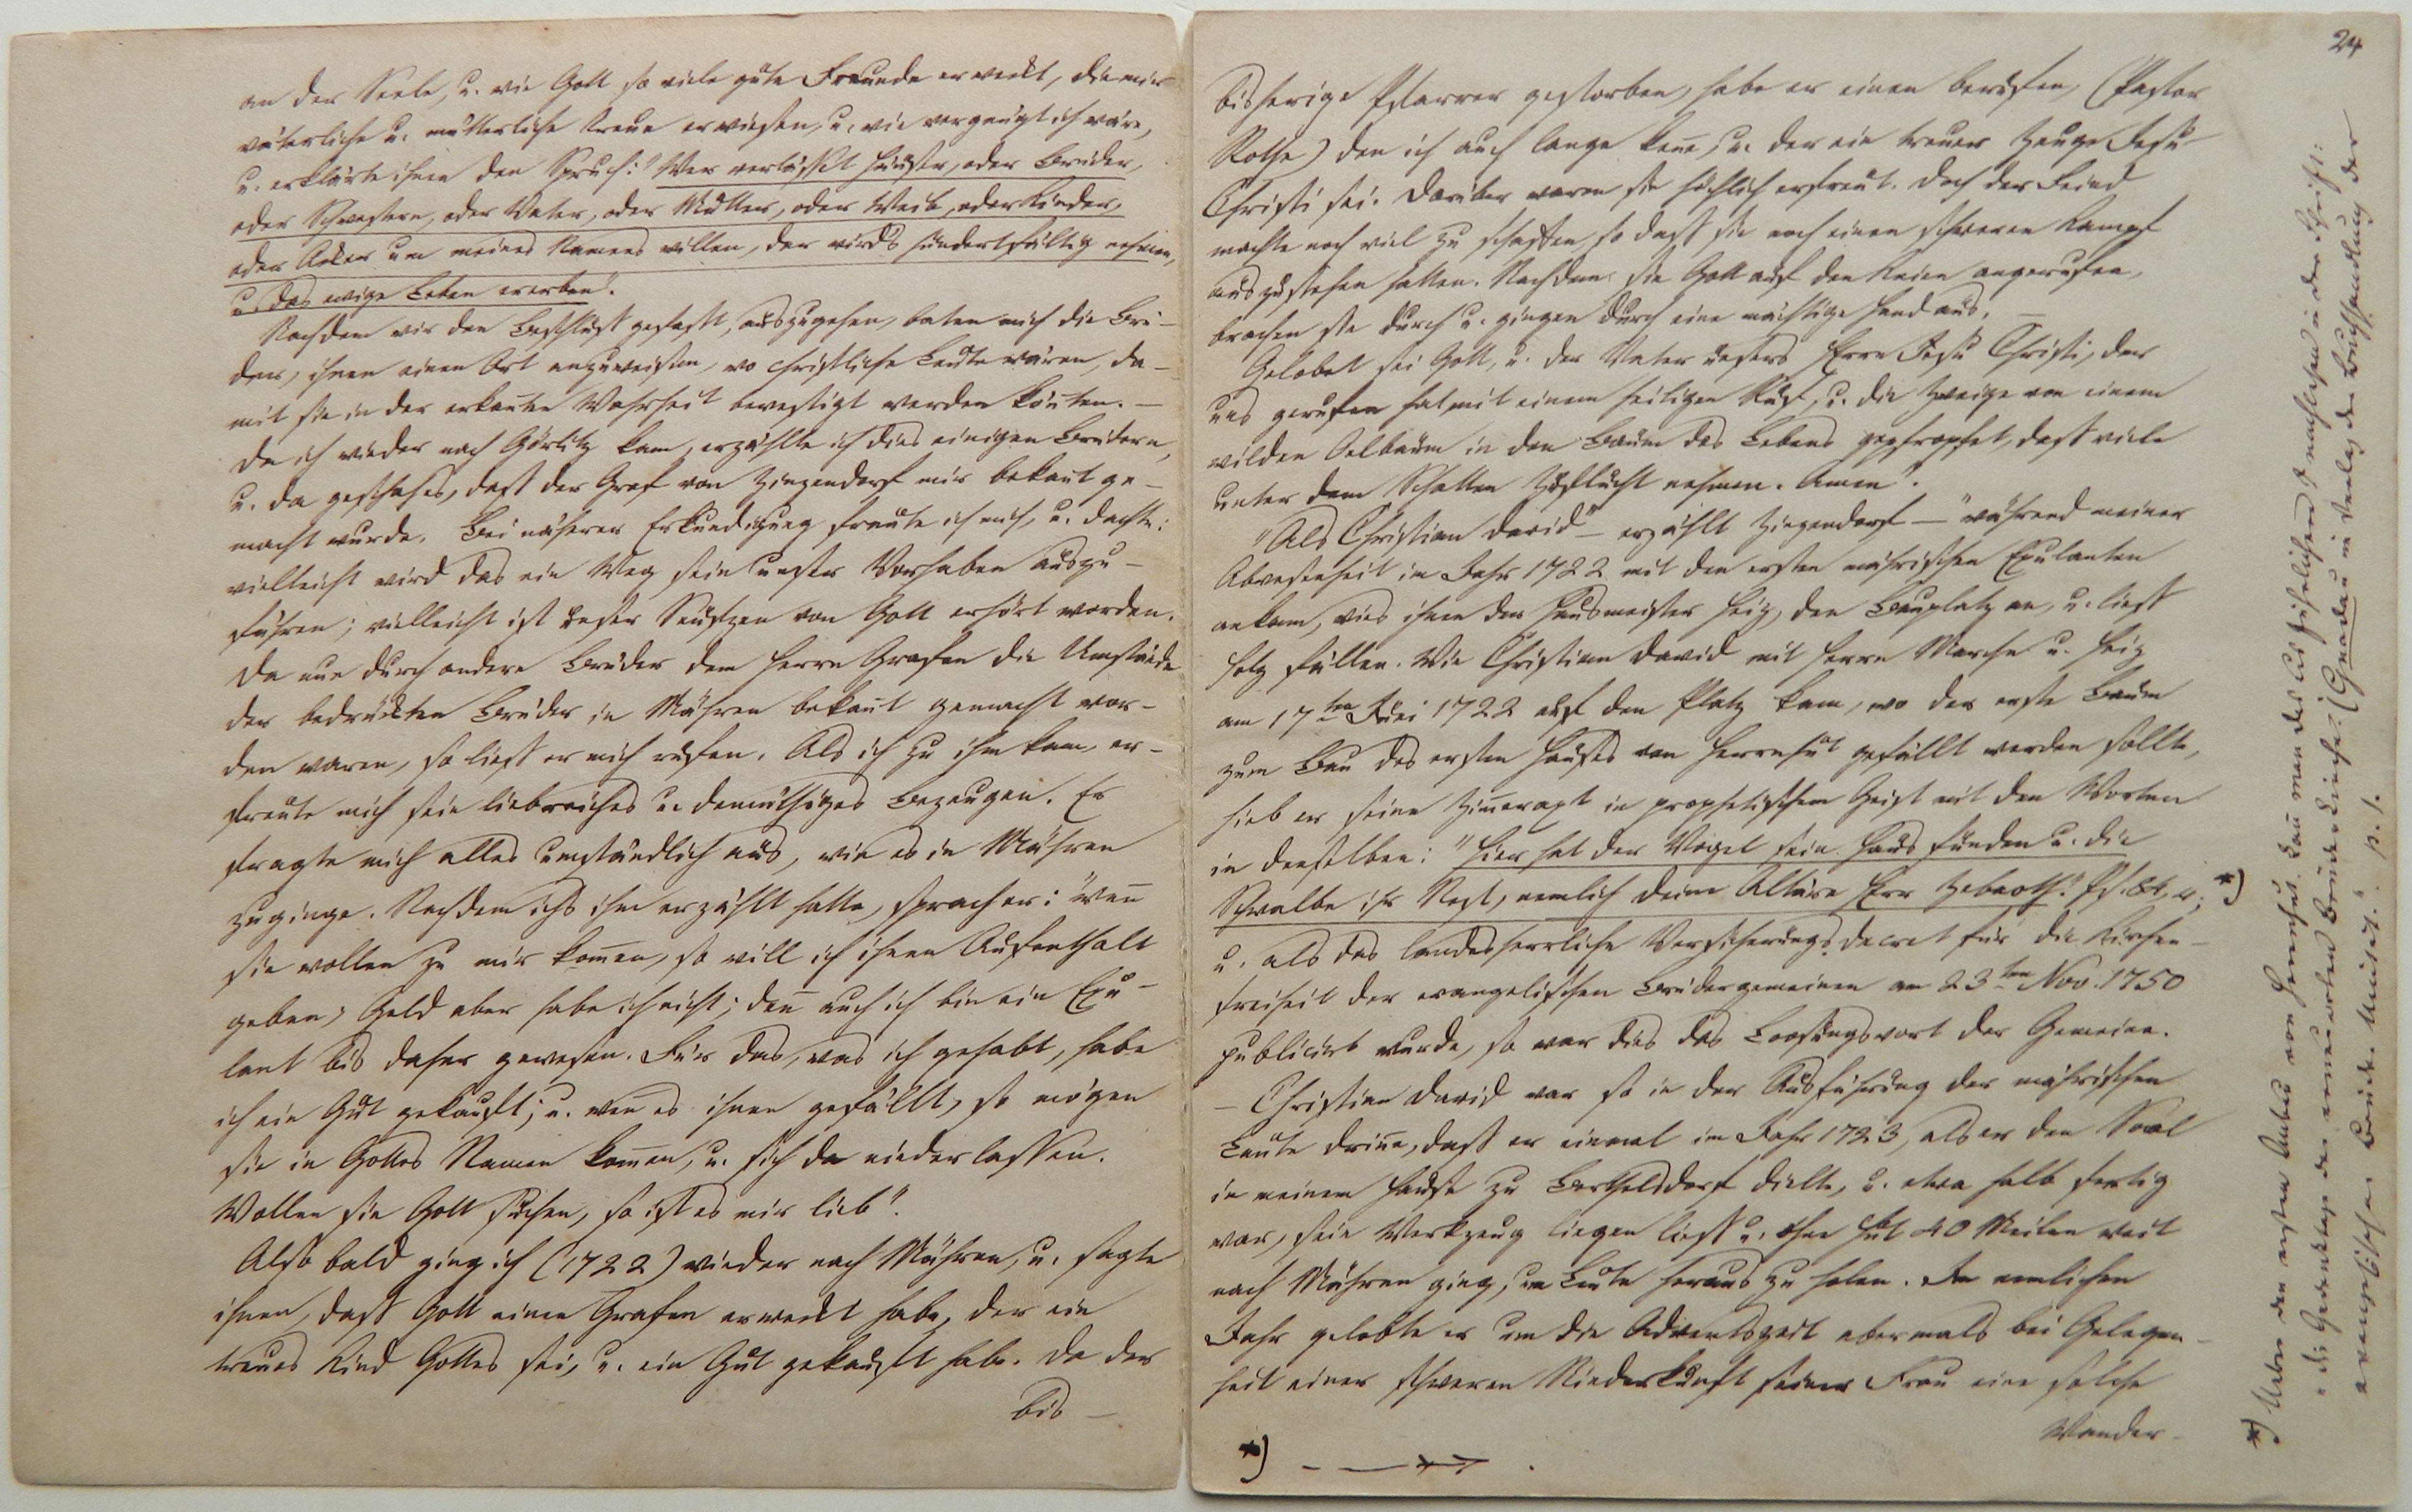 an der Seele, u. wie Gott so viele gute Freunde erweckt, die mir
väterliche u. mütterliche Treue erwiesen, u. wie vergnügt ich wäre,
u. erklärte ihnen den Spruch: "Wer verlässt Häuser, oder Brüder,
oder Schwestern, oder Vater, oder Mutter, oder Weib, oder Kinder,
oder Äcker um meines Namens willen, der wirds hundertfältig nehmen,
u. das ewige Leben ererben".
Nachdem wir den Beschluss gefasst, auszugehen, baten mich die Brü-
der, ihnen einen Ort anzuweisen, wo christliche Leute wären, da-
mit sie in der erkan̄ten Wahrheit bevestigt werden kön̄ten. —
Da ich wieder nach Görlitz kam, erzählte ich dies einigen Brüdern,
u. da geschahes, dass der Graf von Zinzendorf mir bekan̄t ge-
macht wurde. Bei näherer Erkundigung freute ich mich, u. dachte:
vielleicht wird das ein Weg sein unser Vorhaben auszu-
führen; vielleicht ist unser Seufzen von Gott erhört worden.
Da nun durch andere Brüder dem Herrn Grafen die Umstände
der bedrückten Brüder in Mähren bekan̄t gemacht wor-
den waren, so liess er mich rufen. Als ich zu ihm kam, er-
freute mich sein liebreiches u. demüthiges Bezeugen. Er
fragte mich alles umständlich aus, wie es in Mähren
zuginge. Nachdem ichs ihm erzählt hatte, sprach er: "wen̄
sie wollen zu mir kom̄en, so will ich ihnen Aufenthalt
geben; Geld aber habe ich nicht; den̄ auch ich bin ein Exu-
lant bis daher gewesen. Für das, was ich gehabt, habe
ich ein Gut gekauft; u. wen̄ es ihnen gefällt, so mögen
sie in Gottes Namen kom̄en, u. sich da niederlassen.
Wollen sie Gott suchen, so ist es mir lieb".
Also bald ging ich (1722) wieder nach Mähren, u. sagte
ihnen, dass Gott einen Grafen erweckt habe, der ein
treues Kind Gottes sei, u. ein Gut gekauft habe. Da der
bis —
24
bisherige Pfarrer gestorben, habe er einen berufen, (Pastor
Rothe) den ich auch lange ken̄e, u. der ein treuer Zeuge Jesu
Christi sei. Darüber waren sie höchlich erfreut. Doch der Feind
machte noch viel zu schaffen, so dass sie noch einen schweren Kampf
auszustehen hatten. Nachdem sie Gott auf den Knien angerufen,
brachen sie durch u. gingen durch eine mächtige Hand aus. —
Gelobet sei Gott, u. der Vater unsers Herrn Jesu Christi, der
uns gerufen hat mit einem heiligen Ruf, u. die Zweige von einem
wilden Oelbaum in den Baum des Lebens gepfropfet, dass viele
unter dem Schatten Zuflucht nehmen. Amen".
"Als Christian David" — erzählt Zinzendorf — "während meiner
Abwesenheit im Jahr 1722 mit den ersten mährischen Exulanten
ankam, wies ihnen der Hausmeister Heiz, den Bauplatz an, u. liess
Holz fällen. Wie Christian David mit Herrn Marche u. Heiz
am 17ten Juni 1722 auf den Platz kam, wo der erste Baum
zum Bau des ersten Hauses von Herrnhut gefällt werden sollte,
hieb er seine Zim̄eraxt in prophetischem Geist mit den Worten
in denselben: "Hier hat der Vogel sein Haus funden u. die
Schwalbe ihr Nest, nemlich deine Altäre Herr Zebaoth." Ps. 84, 4; *)
u. als das landesherrliche Versicherungsdecret für die Kirchen-
freiheit der evangelischen Brüdergemeinen am 23ten Nov. 1750
publicirt wurde, so war dies das Loosungswort der Gemeine.
— Christian David war so in der Ausführung der mährischen
Leute drin̄e, dass er einmal im Jahr 1723, als er den Saal
in meinem Hause zu Berthelsdorf dielte, u. etwa halb fertig
war, sein Werkzeug liegen liess u. ohne Hut 40 Meilen weit
nach Mähren ging, um Leute heraus zu holen. Im nemlichen
Jahr gelobte er um die Adventszeit abermals bei Gelegen-
heit einer schweren Niederkunft seiner Frau eine solche
Wander-
*)
*) Ueber den ersten Anbau von Herrnhut kan̄ man das ausführlichere nachsehen in der Schrift:
"die Gedenktage der erneuerten Brüderkirche" (Gnadau im Verlag der Buchhandlung der
evangelischen Brüder-Unität." p. 1.